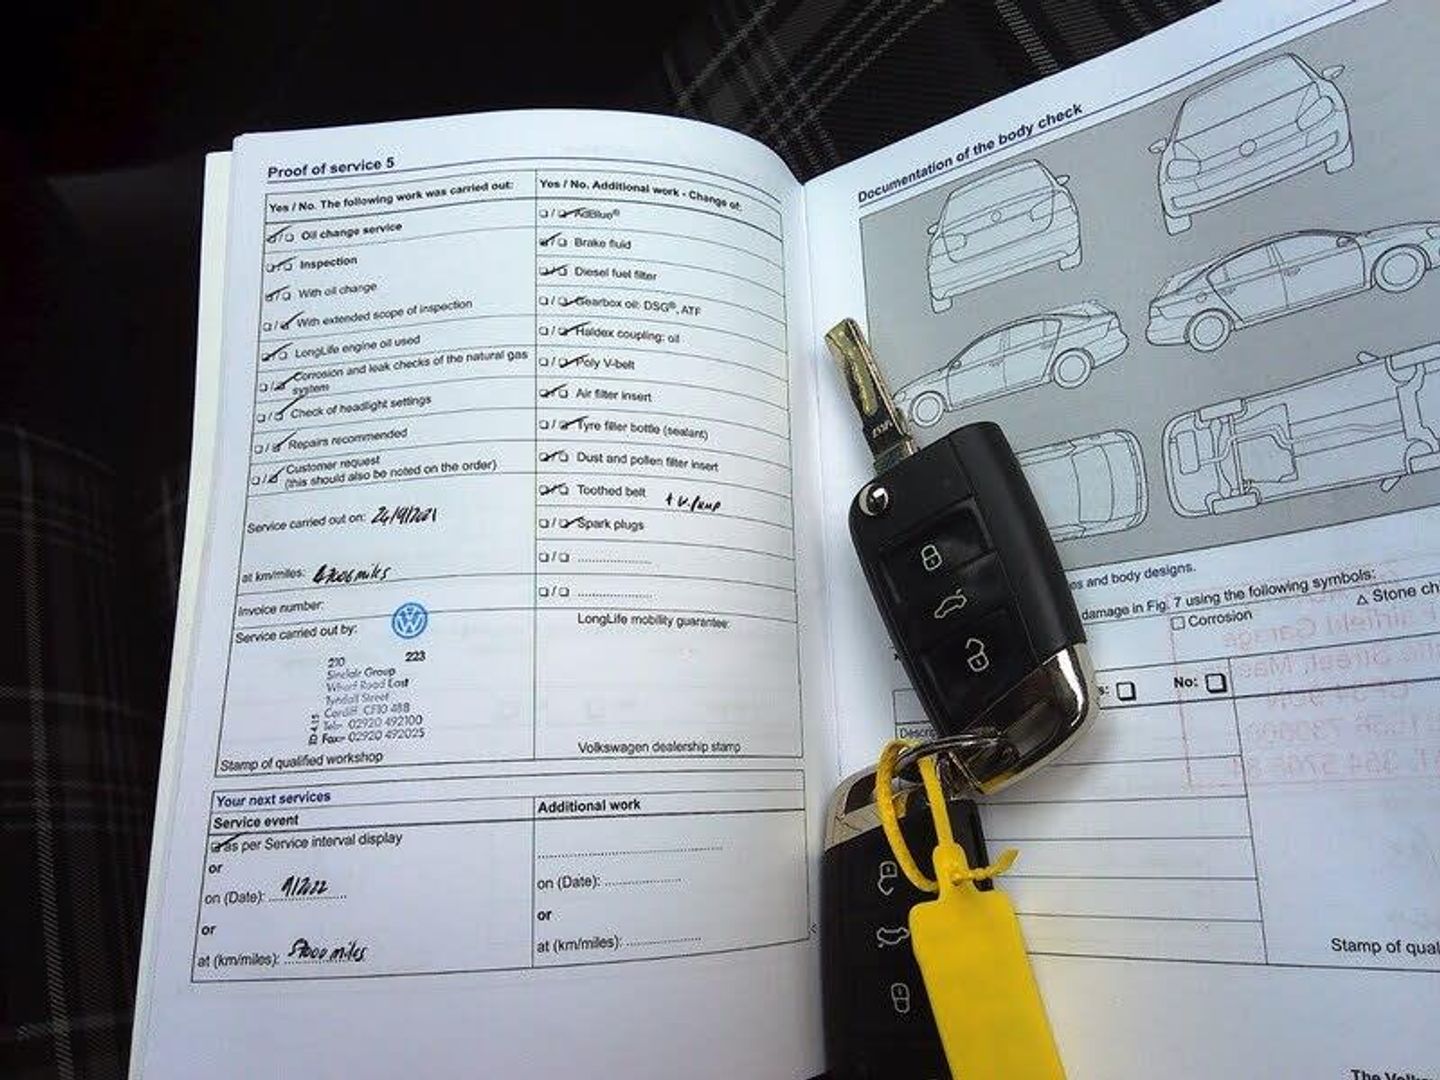 Proof of service 5
Yes / No. The following work was carried out:
Oil change service
Inspection
With oil change
With extended scope of inspection
LongLife engine oil used
Corrosion and leak checks of the natural gas
system
Check of headlight settings
Repairs recommended
Customer request
(this should also be noted on the order)
Service carried out on: 24/9/2021
at km/miles: 47006 miles
Invoice number:
Service carried out by:
210 223
Sinclair Group
Wharf Road East
Tyndall Street
Cardiff CF10 4BB
Tel:- 02920 492100
Fax:- 02920 492025
Stamp of qualified workshop
Yes / No. Additional work - Change of:
AdBlue®
Brake fluid
Diesel fuel filter
Gearbox oil: DSG®, ATF
Haldex coupling: oil
Poly V-belt
Air filter insert
Tyre filler bottle (sealant)
Dust and pollen filter insert
Toothed belt + w.pump
Spark plugs
LongLife mobility guarantee:
Volkswagen dealership stamp
Your next services
Service event
as per Service interval display
or
on (Date): 9/2022
or
at (km/miles): 57000 miles
Additional work
on (Date):
or
at (km/miles):
Documentation of the body check
and body designs.
damage in Fig. 7 using the following symbols:
Corrosion
△ Stone
No:
Stamp of
The